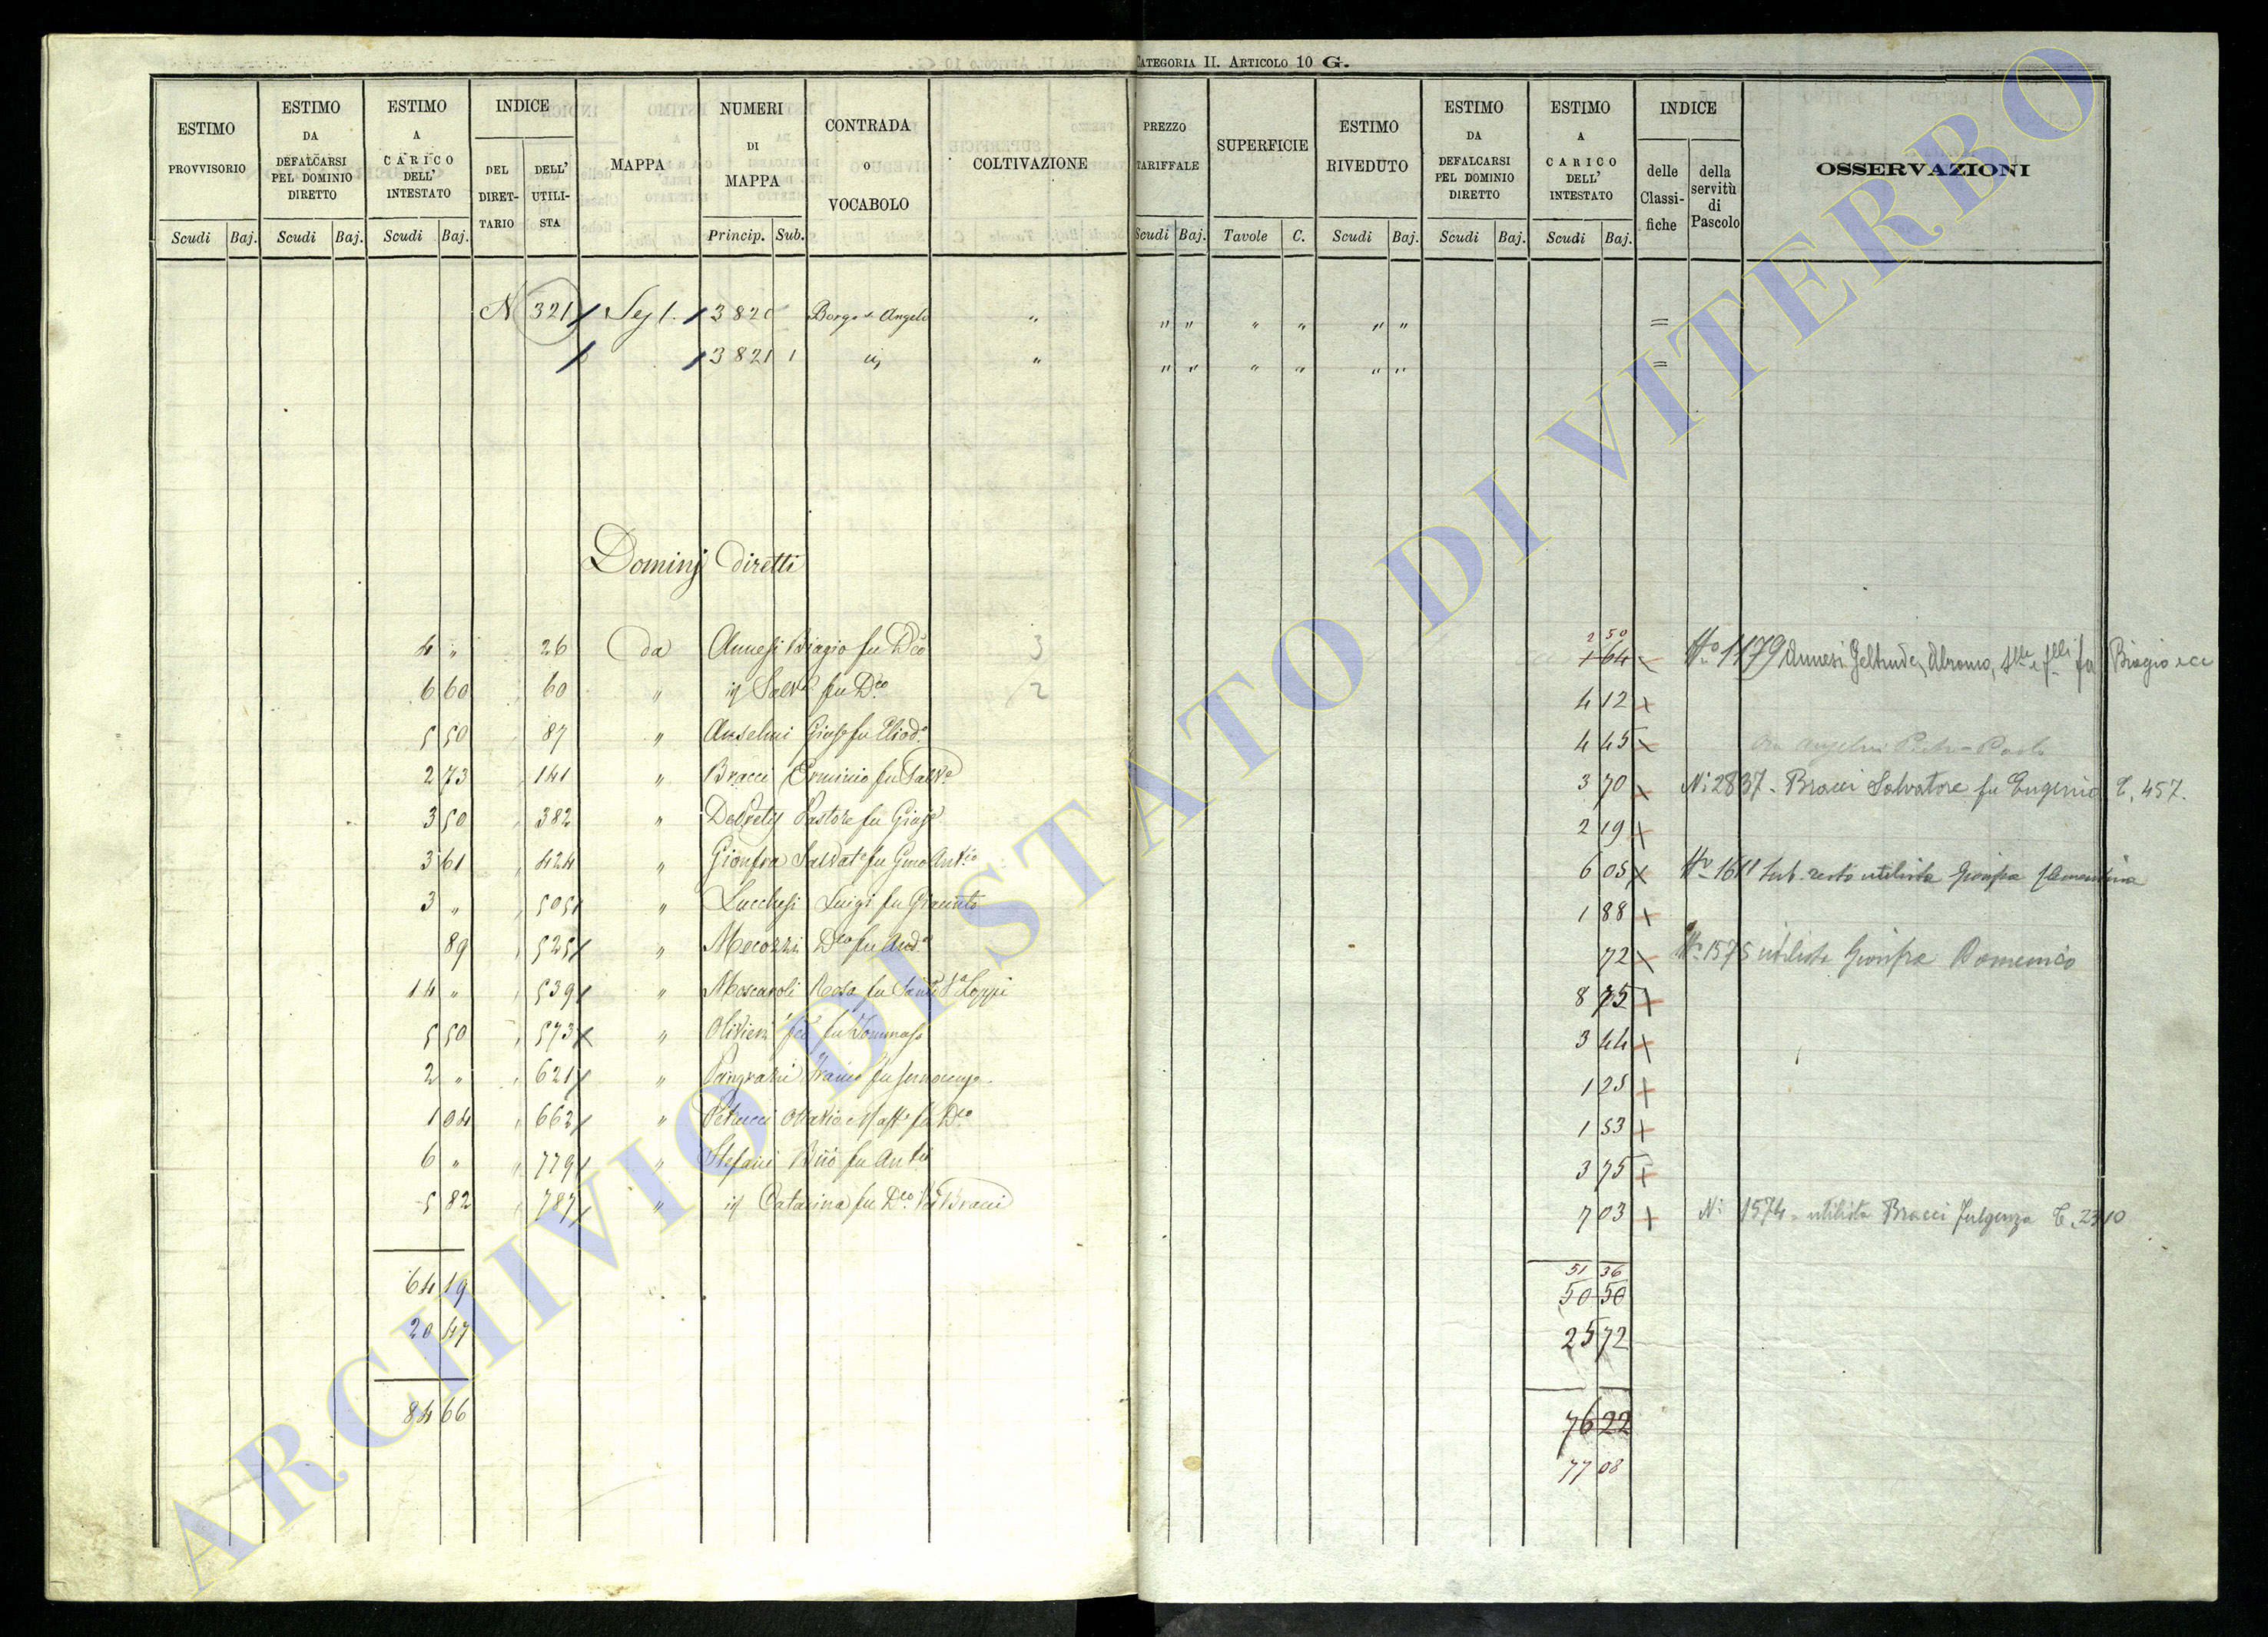 CATEGORIA II. ARTICOLO 10 G.
ESTIMO PROVVISORIO Scudi Baj.
ESTIMO DA DEFALCARSI PEL DOMINIO DIRETTO Scudi Baj.
ESTIMO A CARICO DELL' INTESTATO Scudi Baj.
INDICE DEL DIRET-TARIO DELL' UTILI-STA
MAPPA
NUMERI DI MAPPA Princip. Sub.
CONTRADA o VOCABOLO
COLTIVAZIONE
PREZZO TARIFFALE Scudi Baj.
SUPERFICIE Tavole C.
ESTIMO RIVEDUTO Scudi Baj.
ESTIMO DA DEFALCARSI PEL DOMINIO DIRETTO Scudi Baj.
ESTIMO A CARICO DELL' INTESTATO Scudi Baj.
INDICE delle Classi-fiche della servitù di Pascolo
OSSERVAZIONI
N 321 Sez 1. 3820 Borgo S. Angelo " " " " " " " =
3821 1 " " " " " " " =
Dominj diretti
4 " 26 da Annesi Biagio fu Dco 3 2 50 1 64 No 1179 Annesi Geltrude, Biagio ecc
6 60 60 " id Salve fu Dco 2 4 12
5 50 87 " Anselmi Giuse fu Eliodo 4 45 Ora Angelini Pietro Paolo
2 73 141 " Bracci Erminio fu Salve 3 70 N: 2837 - Bracci Salvatore fu Eugenio T. 457.
3 50 382 " Pastore fu Giuse 2 19
3 61 424 " Gionfra Salvate fu Antio 6 05 No 1611 Sub. resto utilista Gionfra Clementina
3 " 505 " Lucchesi Luigi fu Giacinto 1 88
89 525 " Mecozzi Dco fu Anda 72 No 1575 utilista Gionfra Domenico
14 " 539 " Moscaroli Rosa fu Sante Va Loppi 8 75
5 50 573 " Olivieri fu Tommaso 3 44
2 " 621 " Pangrazi fu 1 25
1 04 662 " Petrucci Ottavio fu Dco 1 53
6 " 779 " Stefani fu Anto 3 75
5 82 787 " id Catarina fu Dco Va Bracci 7 03 N: 1574 - utilista Bracci Fulgenza T. 2310
64 19 51 36
50 50
20 47 25 72
84 66 76 22
77 08
ARCHIVIO DI STATO DI VITERBO